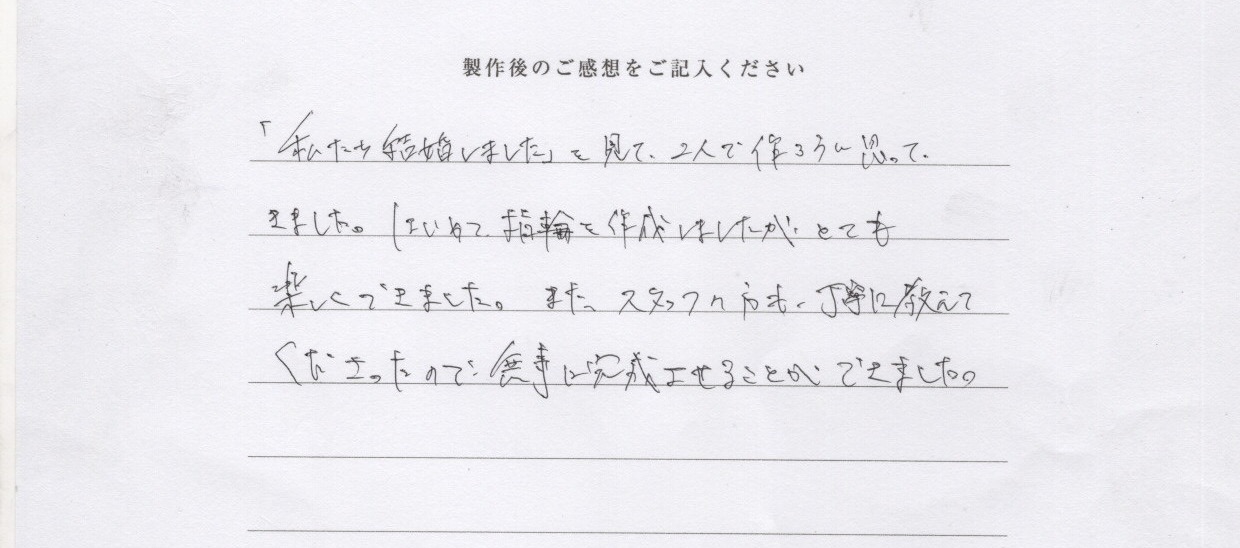 製作後のご感想をご記入ください
「私たち結婚しました」を見て、2人で作ろうと思って、
きました。はじめて、指輪を作成しましたが、とても
楽しくできました。また、スタッフの方も、丁寧に教えて
くださったので、無事に完成させることができました。